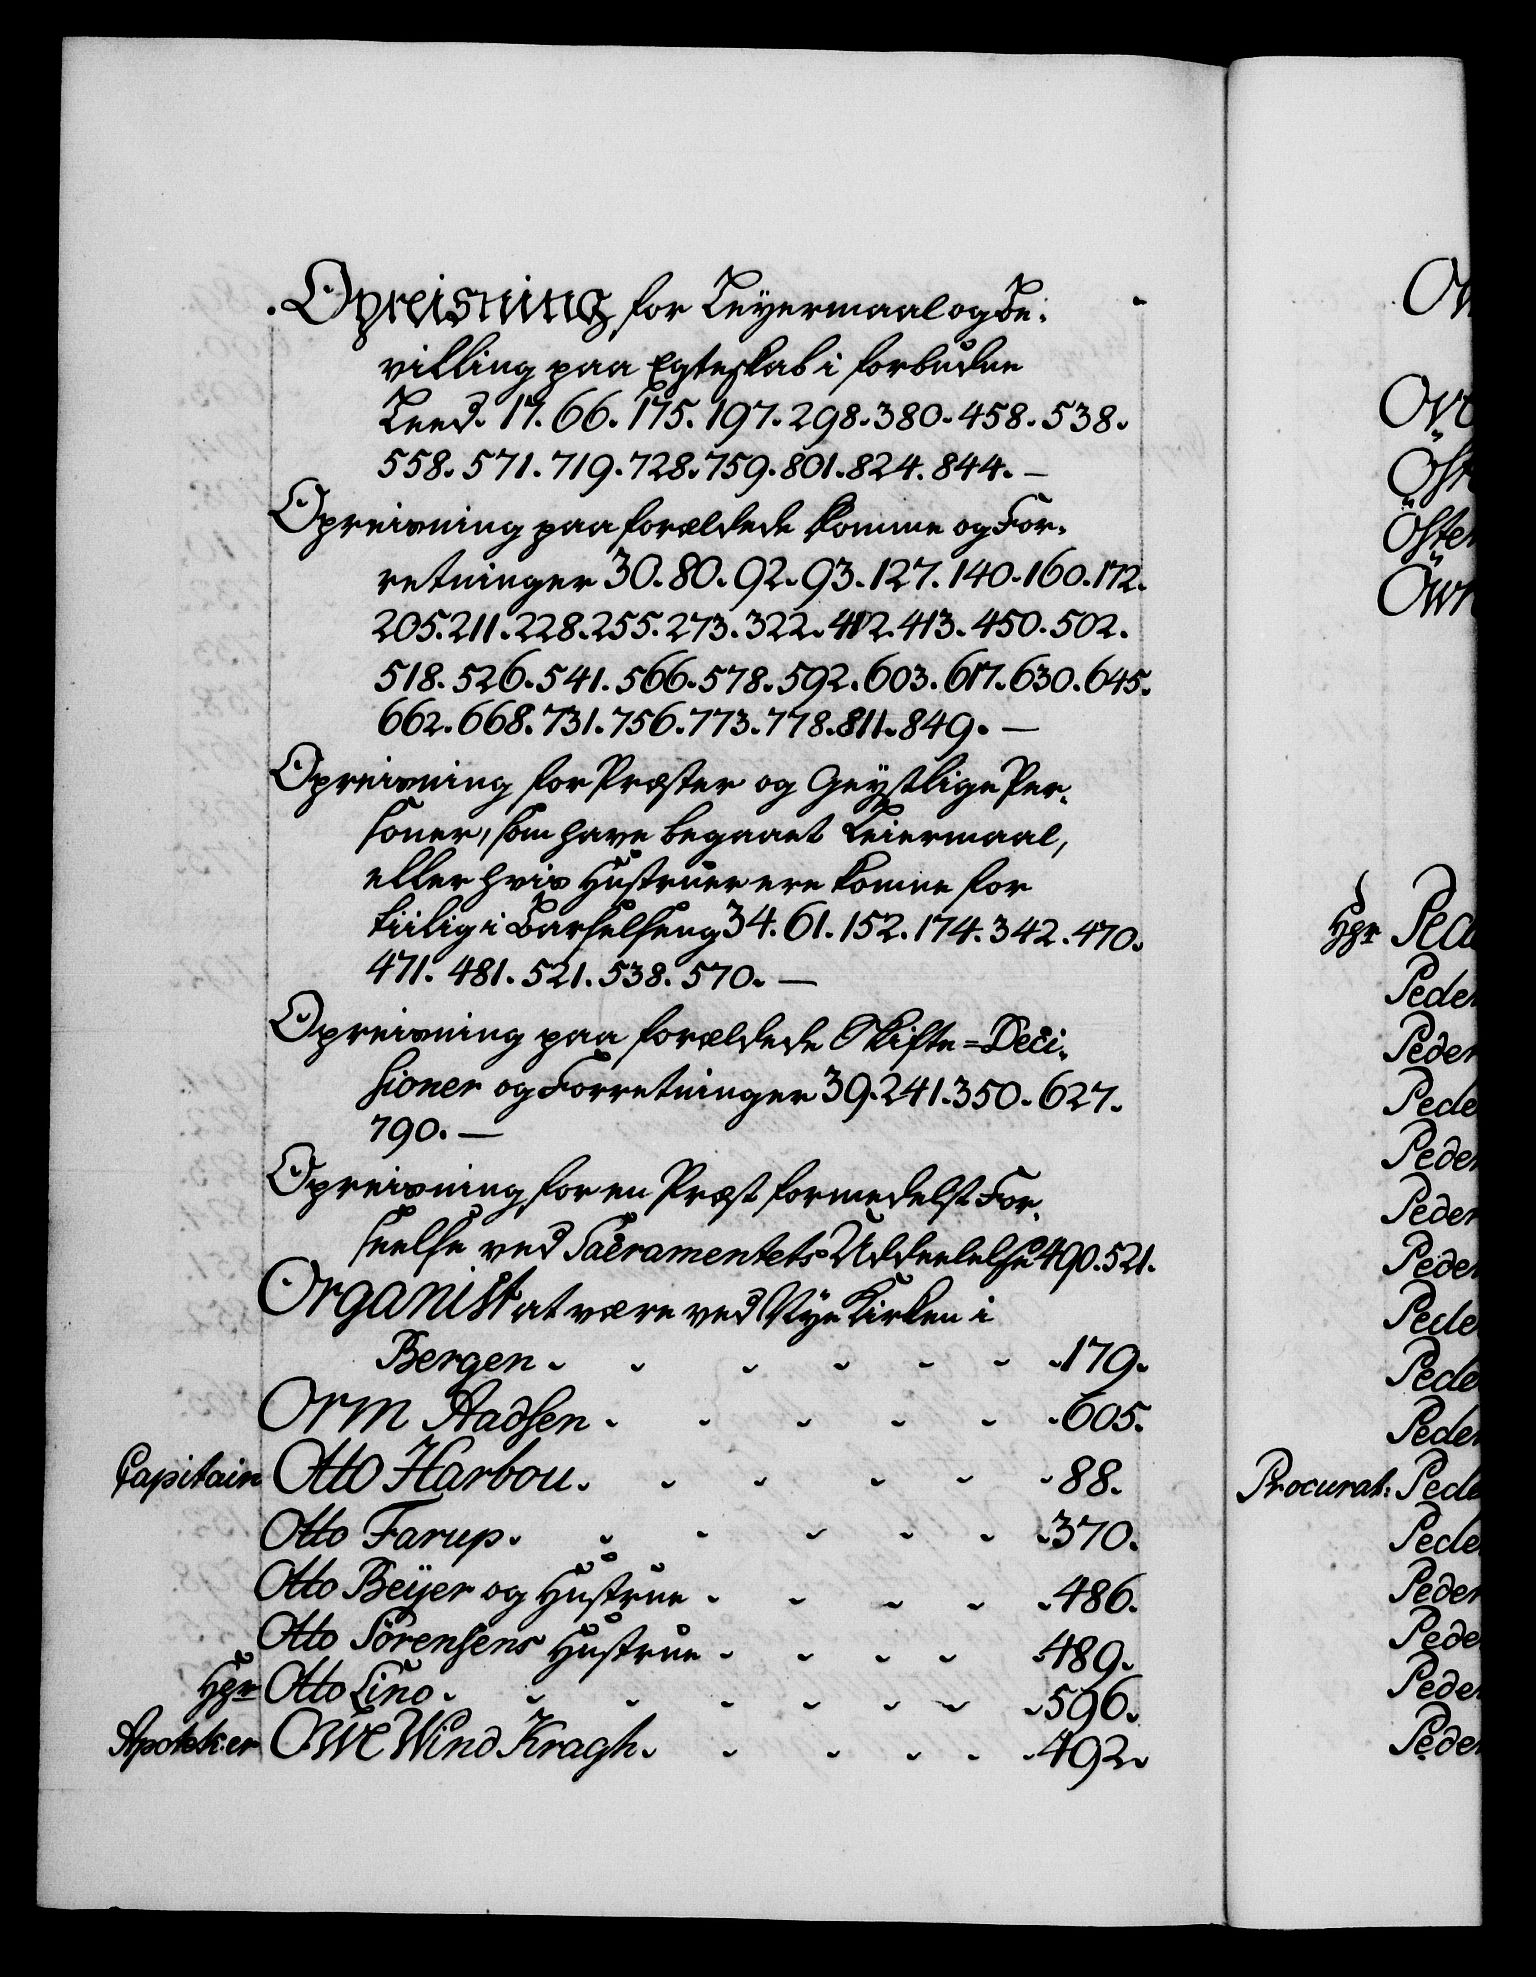 Opreisning for Leyermaal og Be-
villing paa Egteskab i forbudne
Leed. 17. 66. 175. 197. 298. 380. 458. 538.
558. 571. 719. 728. 759. 801. 824. 844. —
Opreisning paa forældede Domme og For-
retninger 30. 80. 92. 93. 127. 140. 160. 172.
205. 211. 228. 255. 273. 322. 412. 413. 450. 502.
518. 526. 541. 566. 578. 592. 603. 617. 630. 645.
662. 668. 731. 756. 773. 778. 811. 849. —
Opreisning for Præster og Geystlige Per-
soner, som have begaaet Leiermaal,
eller hvis Hustruer ere komne for
tiilig i Barselseng 34. 61. 152. 174. 342. 470.
471. 481. 521. 538. 570. —
Opreisning paa forældede Skifte=Deci-
sioner og Forretninger 39. 241. 350. 627.
790. —
Opreisning for en Præst formedelst For-
seelse ved Sacramentets Uddeelelse 490. 521.
Organist at være ved Nye Kirken i
Bergen 179.
Orm Aadsen 605.
Capitain Otto Harbou 88.
Otto Farup 370.
Otto Beyer og Hustrue 486.
Otto Sörensens Hustrue 489.
Hgr Otto Lino 596.
Apotheker Owe Wind Kragh 492.
Hgr Ped
Peder
Peder
Pede
Peder
Peder
Peder
Pede
Pede
Peder
Procurat: Pede
Pede
Peder
Pede
Peder
Peder